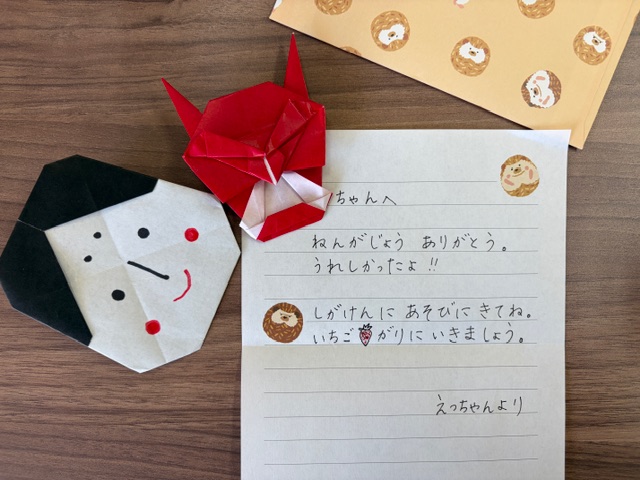 ちゃんへ
ねんがじょう ありがとう。
うれしかったよ!!
しがけんに あそびに きてね。
いちご がりに いきましょう。
えっちゃんより